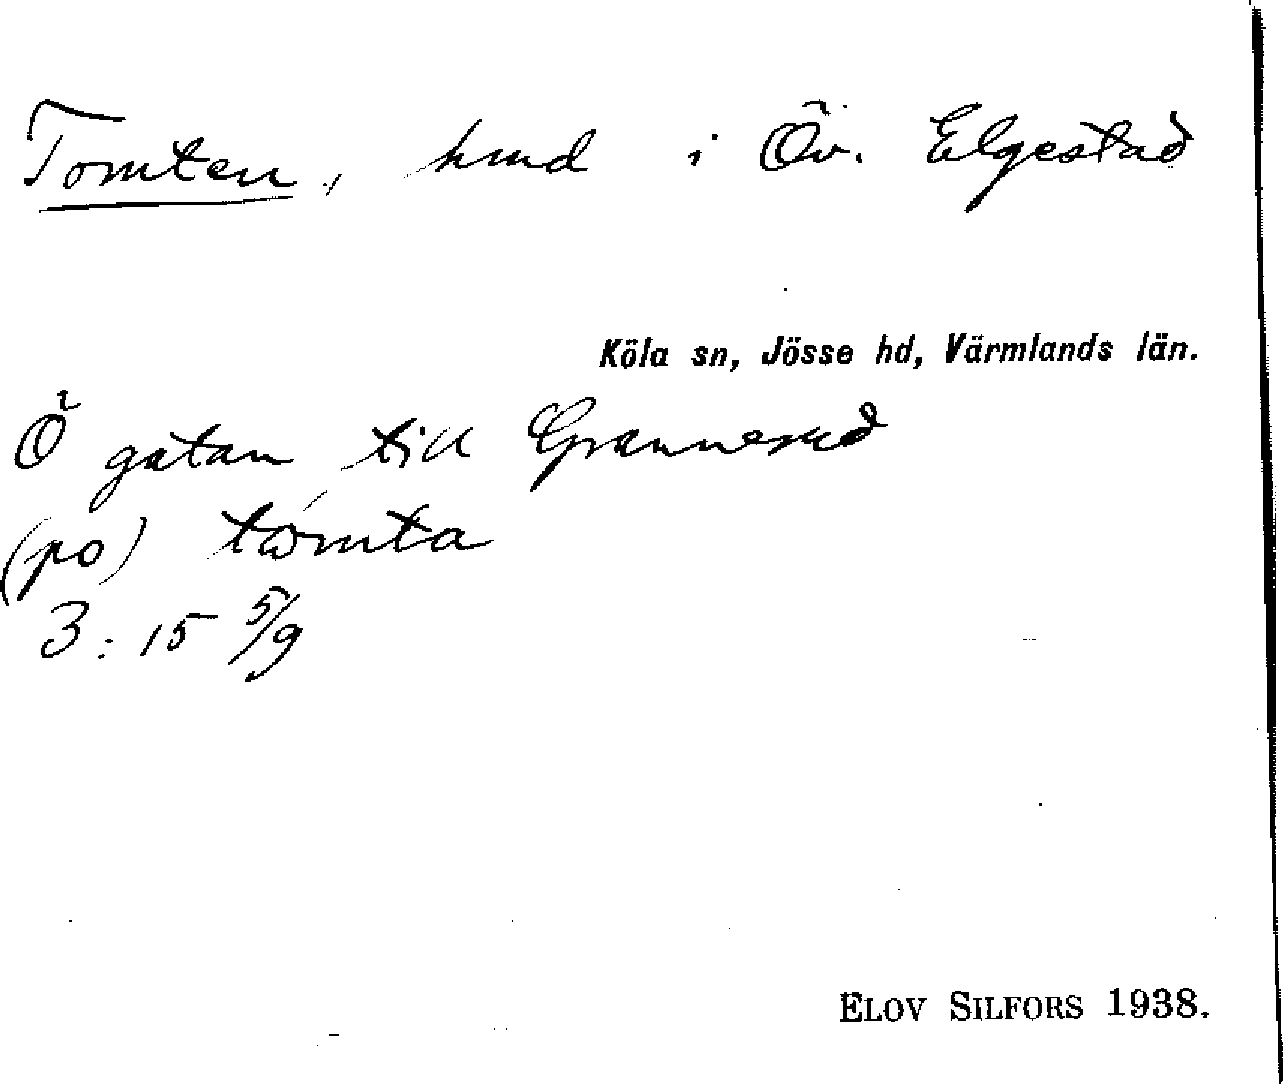 Tomten, hmd i Öv. Elgestad
Köla sn, Jösse hd, Värmlands län.
Ö gatan till Grannerud
(po) tómta
3:15 5/9
ELOV SILFORS 1938.